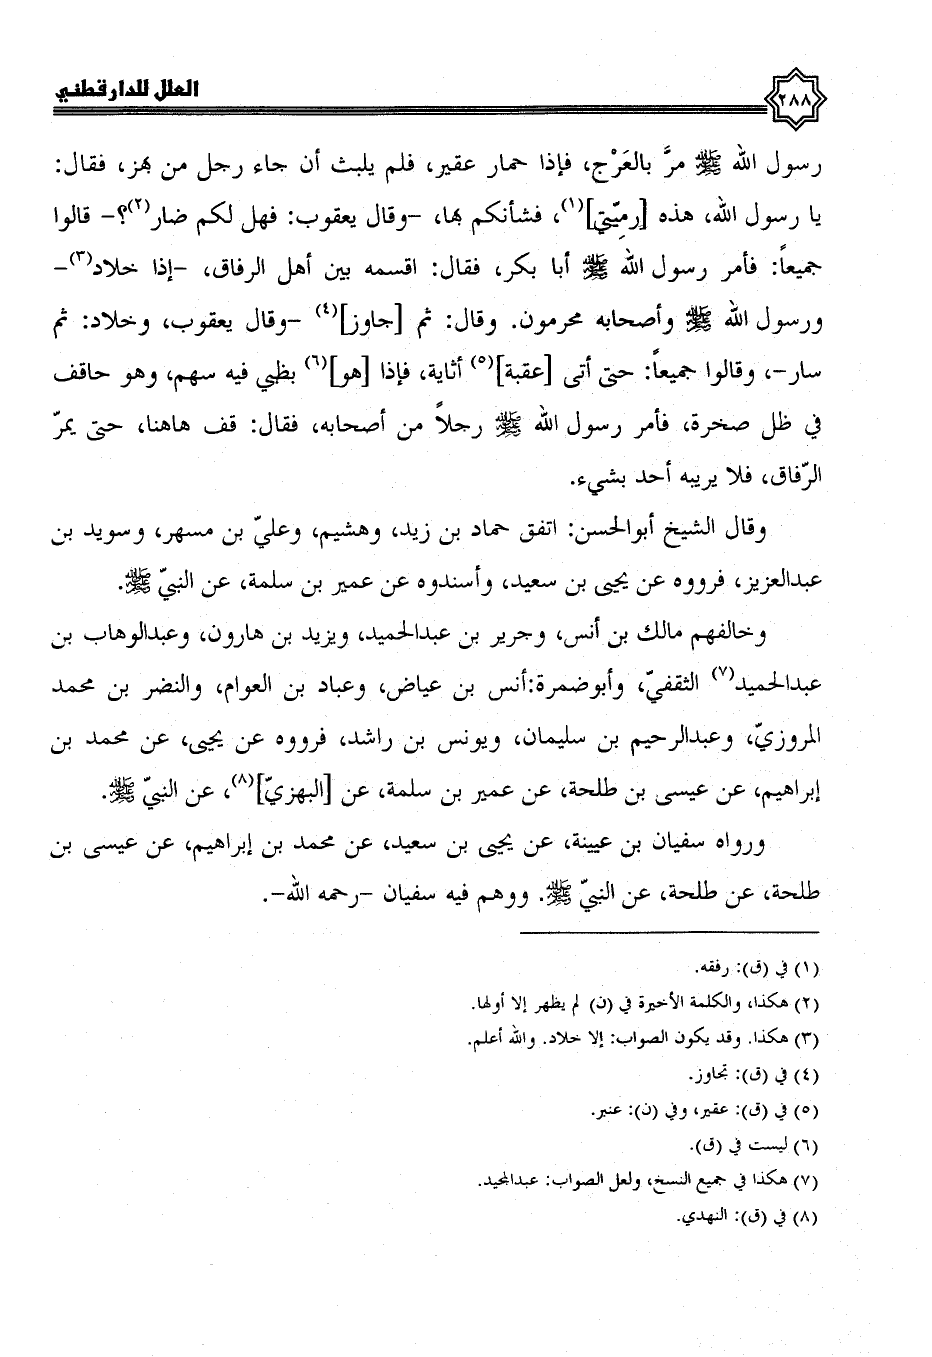 العلل للدارقطني
٢٨٨
رسول الله ﷺ مرَّ بالعَرْج، فإذا حمار عقير، فلم يلبث أن جاء رجل من بهز، فقال:
يا رسول الله، هذه [رميّتي](١)، فشأنكم بها، -وقال يعقوب: فهل لكم ضار(٢)؟- قالوا
جميعاً: فأمر رسول الله ﷺ أبا بكر، فقال: اقسمه بين أهل الرفاق، -إذا خلاد(٣)-
ورسول الله ﷺ وأصحابه محرمون. وقال: ثم [جاوز](٤) -وقال يعقوب، وخلاد: ثم
سار-، وقالوا جميعاً: حتى أتى [عقبة](٥) أثاية، فإذا [هو](٦) بظبي فيه سهم، وهو حاقف
في ظل صخرة، فأمر رسول الله ﷺ رجلاً من أصحابه، فقال: قف هاهنا، حتى يمرّ
الرّفاق، فلا يريبه أحد بشيء.
وقال الشيخ أبوالحسن: اتفق حماد بن زيد، وهشيم، وعليّ بن مسهر، وسويد بن
عبدالعزيز، فرووه عن يحيى بن سعيد، وأسندوه عن عمير بن سلمة، عن النبيّ ﷺ.
وخالفهم مالك بن أنس، وجرير بن عبدالحميد، ويزيد بن هارون، وعبدالوهاب بن
عبدالحميد(٧) الثقفيّ، وأبوضمرة:أنس بن عياض، وعباد بن العوام، والنضر بن محمد
المروزيّ، وعبدالرحيم بن سليمان، ويونس بن راشد، فرووه عن يحيى، عن محمد بن
إبراهيم، عن عيسى بن طلحة، عن عمير بن سلمة، عن [البهزيّ](٨)، عن النبيّ ﷺ.
ورواه سفيان بن عيينة، عن يحيى بن سعيد، عن محمد بن إبراهيم، عن عيسى بن
طلحة، عن طلحة، عن النبيّ ﷺ. ووهم فيه سفيان -رحمه الله-.
(١) في (ق): رفقه.
(٢) هكذا، والكلمة الأخيرة في (ن) لم يظهر إلا أولها.
(٣) هكذا. وقد يكون الصواب: إلا خلاد. والله أعلم.
(٤) في (ق): تجاوز.
(٥) في (ق): عقير، وفي (ن): عنبر.
(٦) ليست في (ق).
(٧) هكذا في جميع النسخ، ولعل الصواب: عبدالمجيد.
(٨) في (ق): النهدي.